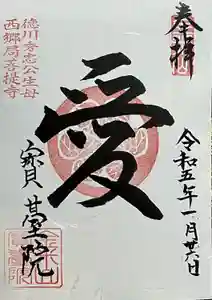 奉拝
徳川秀忠公生母
西郷局菩提寺
愛
令和五年一月廿六日
寳䑓院